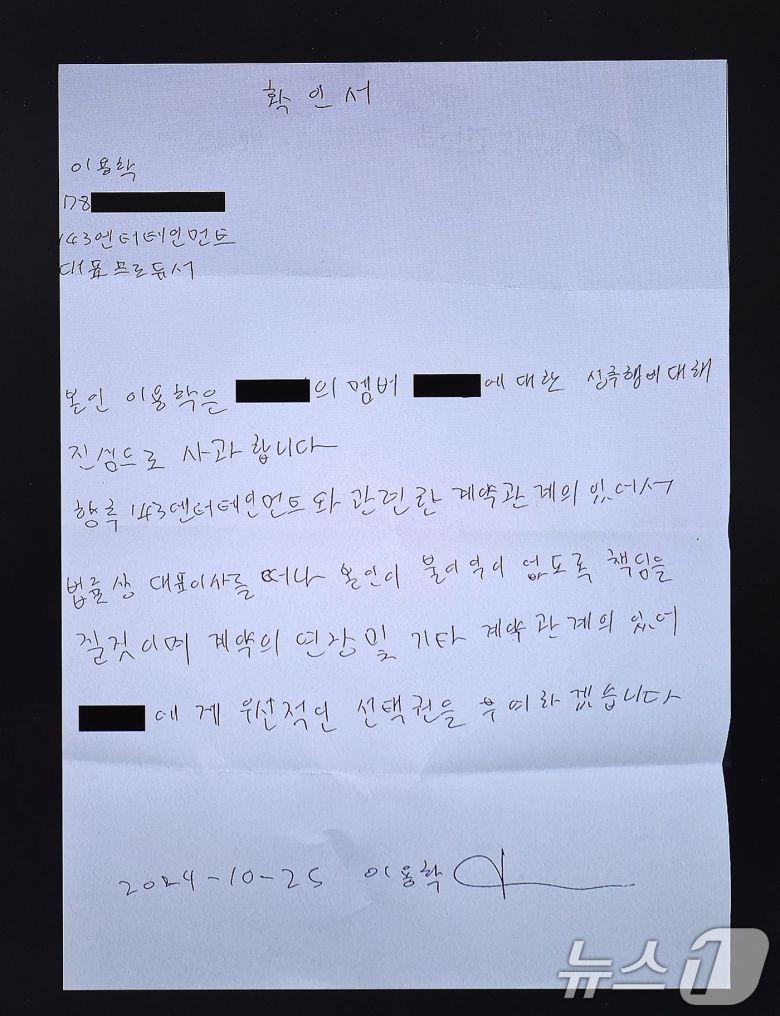 확인서
이용학
178
143엔터테인먼트
대표프로듀서
본인 이용학은 의 멤버 에 대한 성추행에 대해
진심으로 사과합니다
향후 143엔터테인먼트와 관련한 계약관계의 있어서
법률상 대표이사를 떠나 본인이 불이익이 없도록 책임을
질것이며 계약의 연장 및 기타 계약관계의 있어
에게 우선적인 선택권을 부여하겠습니다
2024-10-25 이용학
뉴스1